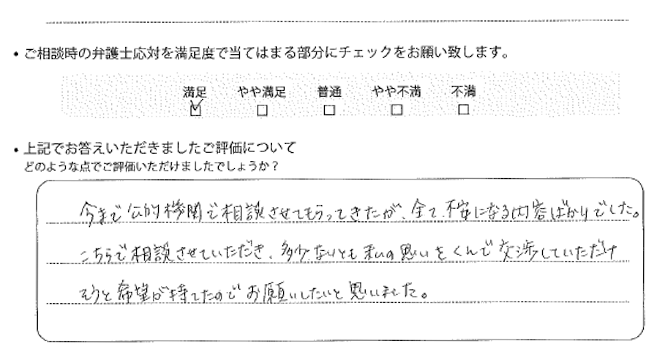 ・ご相談時の弁護士応対を満足度で当てはまる部分にチェックをお願い致します。
満足 やや満足 普通 やや不満 不満
・上記でお答えいただきましたご評価について
どのような点でご評価いただけましたでしょうか？
今まで公的機関で相談させてもらってきたが、全て、不安になる内容ばかりでした。
こちらで相談させていただき、多少ないとも私の思いをくんで交渉していただけ
そうと希望が持てたのでお願いしたいと思いました。